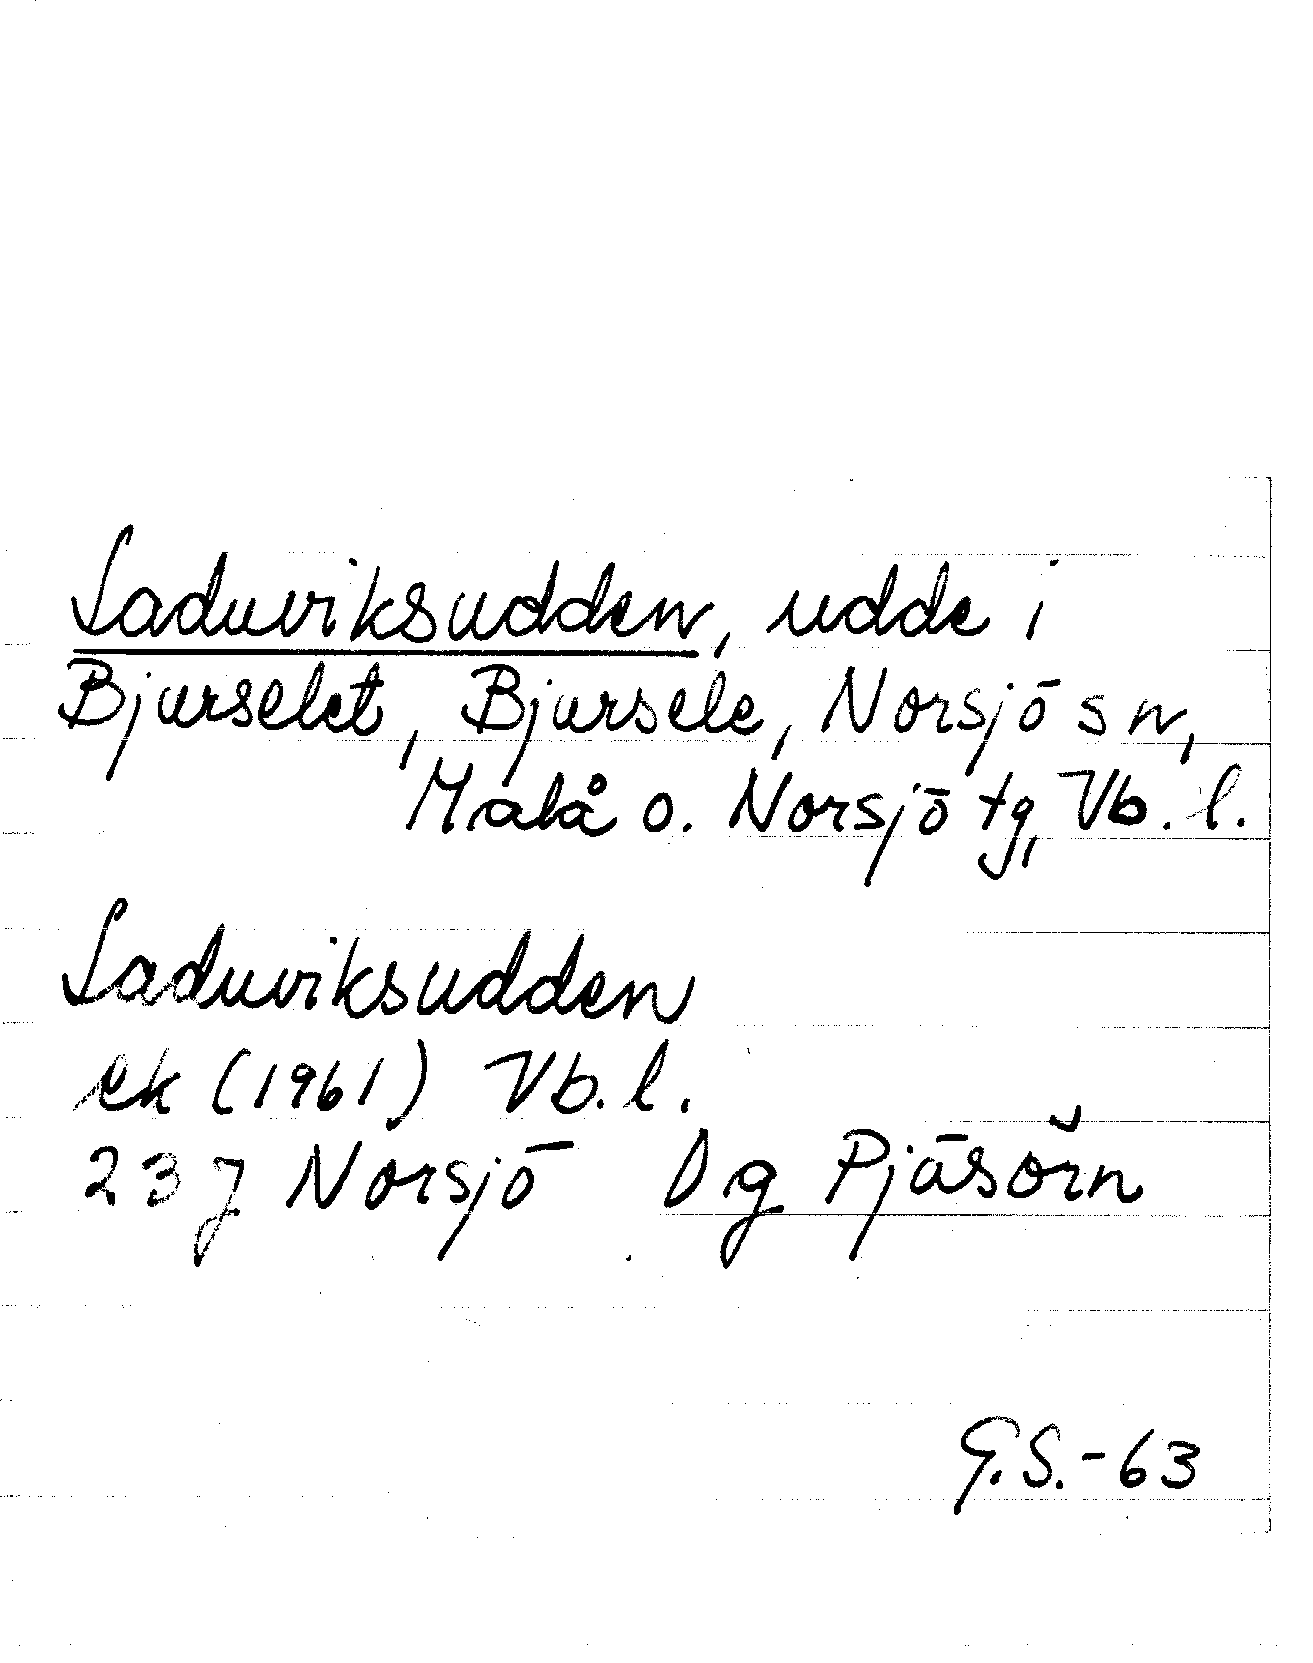 Laduviksudden, udde i
Bjurselet, Bjursele, Norsjö sn,
Malå o. Norsjö tg, Vb. l.
Laduviksudden
ek (1961) Vb. l.
23 J Norsjö Dg Pjäsörn
G.S.-63